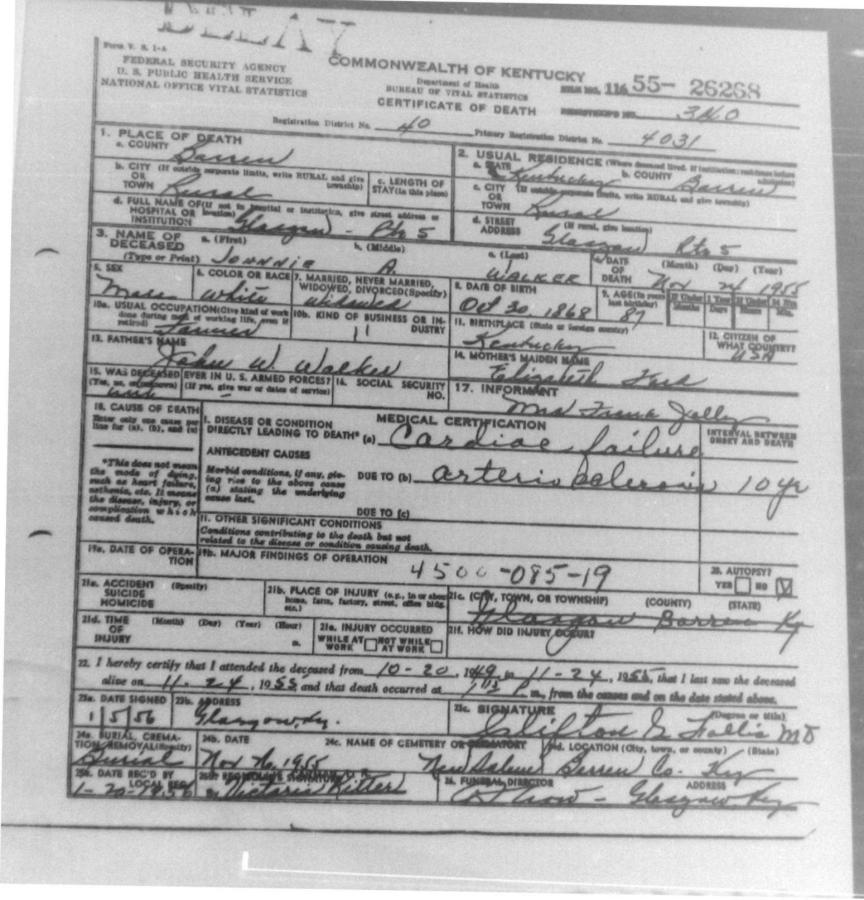 DELAY
Form V. S. 1-A
FEDERAL SECURITY AGENCY
U. S. PUBLIC HEALTH SERVICE
NATIONAL OFFICE VITAL STATISTICS
COMMONWEALTH OF KENTUCKY
Department of Health
BUREAU OF VITAL STATISTICS
CERTIFICATE OF DEATH
FILE NO. 116 55- 26268
REGISTRAR'S NO. 340
Registration District No. 40 Primary Registration District No. 4031
1. PLACE OF DEATH
a. COUNTY Barren
b. CITY (If outside corporate limits, write RURAL and give township)
OR TOWN Rural
c. LENGTH OF STAY (in this place)
d. FULL NAME OF (If not in hospital or institution, give street address or location)
HOSPITAL OR INSTITUTION Glasgow - Rte 5
2. USUAL RESIDENCE (Where deceased lived. If institution: residence before admission)
a. STATE Kentucky b. COUNTY Barren
c. CITY (If outside corporate limits, write RURAL and give township)
OR TOWN Rural
d. STREET ADDRESS (If rural, give location)
Glasgow Rte 5
3. NAME OF DECEASED (Type or Print)
a. (First) b. (Middle) c. (Last)
JOHNNIE A. WALKER
4. DATE OF DEATH (Month) (Day) (Year)
Nov 24 1955
5. SEX
Male
6. COLOR OR RACE
White
7. MARRIED, NEVER MARRIED, WIDOWED, DIVORCED (Specify)
Widowed
8. DATE OF BIRTH
Oct 30, 1868
9. AGE (In years last birthday)
87
If Under 1 Year If Under 24 Hrs
Months Days Hours Min.
10a. USUAL OCCUPATION (Give kind of work done during most of working life, even if retired)
Farmer
10b. KIND OF BUSINESS OR INDUSTRY
11. BIRTHPLACE (State or foreign country)
Kentucky
12. CITIZEN OF WHAT COUNTRY?
USA
13. FATHER'S NAME
John W. Walker
14. MOTHER'S MAIDEN NAME
Elizabeth
15. WAS DECEASED EVER IN U. S. ARMED FORCES?
(Yes, no, or unknown) (If yes, give war or dates of service)
16. SOCIAL SECURITY NO.
17. INFORMANT
Mrs Frank Jolly
18. CAUSE OF DEATH
Enter only one cause per line for (a), (b), and (c)
*This does not mean the mode of dying, such as heart failure, asthenia, etc. It means the disease, injury, or complication which caused death.
MEDICAL CERTIFICATION
INTERVAL BETWEEN ONSET AND DEATH
I. DISEASE OR CONDITION DIRECTLY LEADING TO DEATH* (a) Cardiac failure
ANTECEDENT CAUSES
Morbid conditions, if any, giving rise to the above cause (a) stating the underlying cause last.
DUE TO (b) arteriosclerosis 10 yr
DUE TO (c)
11. OTHER SIGNIFICANT CONDITIONS
Conditions contributing to the death but not related to the disease or condition causing death.
19a. DATE OF OPERATION
19b. MAJOR FINDINGS OF OPERATION
4500-085-19
20. AUTOPSY?
YES NO
21a. ACCIDENT SUICIDE HOMICIDE (Specify)
21b. PLACE OF INJURY (e.g., in or about home, farm, factory, street, office bldg. etc.)
21c. (CITY, TOWN, OR TOWNSHIP) (COUNTY) (STATE)
Glasgow Barren Ky
21d. TIME OF INJURY (Month) (Day) (Year) (Hour) m.
21e. INJURY OCCURRED
WHILE AT WORK NOT WHILE AT WORK
21f. HOW DID INJURY OCCUR?
22. I hereby certify that I attended the deceased from 10-20, 1949, to 11-24, 1955, that I last saw the deceased
alive on 11-24, 1955, and that death occurred at m., from the causes and on the date stated above.
23a. DATE SIGNED
1/5/56
23b. ADDRESS
Glasgow, Ky.
23c. SIGNATURE (Degree or title)
Clifton G Follis MD
24a. BURIAL, CREMATION, REMOVAL (Specify)
Burial
24b. DATE
Nov 26, 1955
24c. NAME OF CEMETERY OR CREMATORY
New Salem
24d. LOCATION (City, town, or county) (State)
Barren Co. Ky
25a. DATE REC'D BY LOCAL REG.
1-20-1956
25b. REGISTRAR'S SIGNATURE
Victoria Ritter
26. FUNERAL DIRECTOR ADDRESS
Glasgow Ky